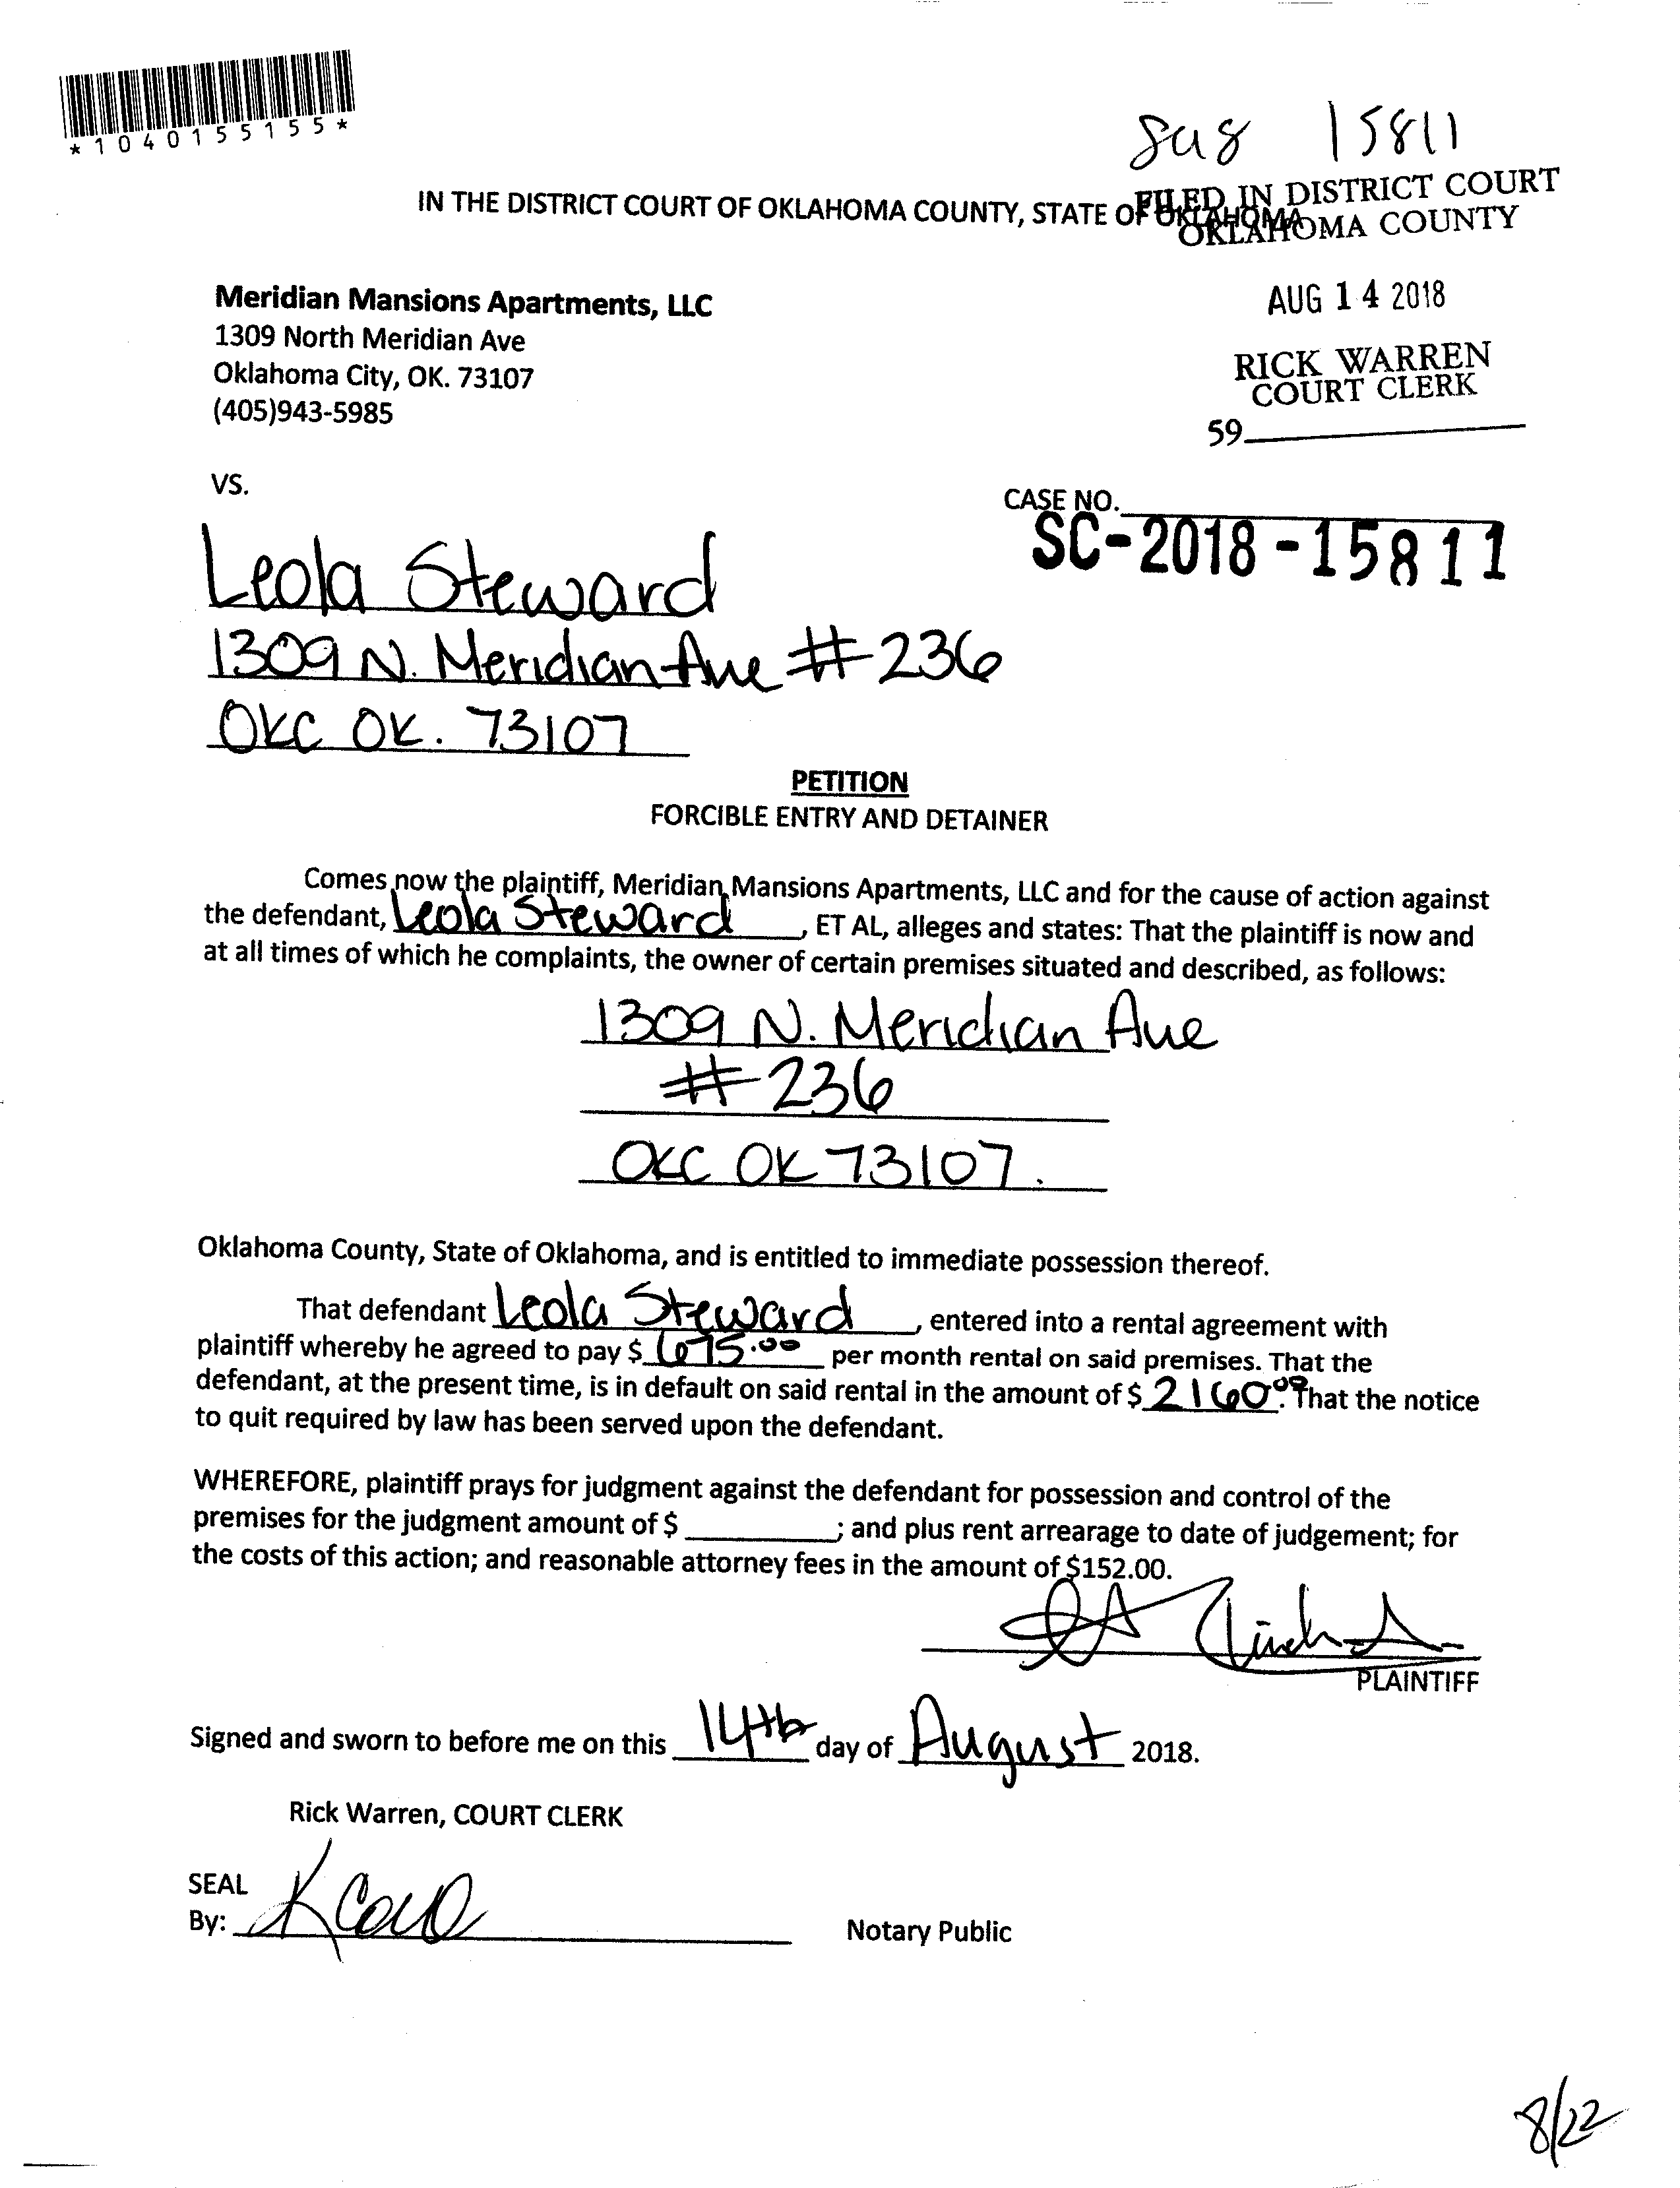 *1040155155*
15811
IN THE DISTRICT COURT OF OKLAHOMA COUNTY, STATE OF OKLAHOMA
FILED IN DISTRICT COURT
OKLAHOMA COUNTY
Meridian Mansions Apartments, LLC
1309 North Meridian Ave
Oklahoma City, OK. 73107
(405)943-5985
AUG 14 2018
RICK WARREN
COURT CLERK
59
VS.
CASE NO.
SC-2018-15811
Leola Steward
1309 N. Meridian Ave #236
OKC OK. 73107
PETITION
FORCIBLE ENTRY AND DETAINER
Comes now the plaintiff, Meridian Mansions Apartments, LLC and for the cause of action against
the defendant, Leola Steward, ET AL, alleges and states: That the plaintiff is now and
at all times of which he complaints, the owner of certain premises situated and described, as follows:
1309 N. Meridian Ave
#236
OKC OK 73107.
Oklahoma County, State of Oklahoma, and is entitled to immediate possession thereof.
That defendant Leola Steward, entered into a rental agreement with
plaintiff whereby he agreed to pay $ 675.00 per month rental on said premises. That the
defendant, at the present time, is in default on said rental in the amount of $ 2160.00. That the notice
to quit required by law has been served upon the defendant.
WHEREFORE, plaintiff prays for judgment against the defendant for possession and control of the
premises for the judgment amount of $ ; and plus rent arrearage to date of judgement; for
the costs of this action; and reasonable attorney fees in the amount of $152.00.
PLAINTIFF
Signed and sworn to before me on this 14th day of August 2018.
Rick Warren, COURT CLERK
SEAL
By: Notary Public
8/22